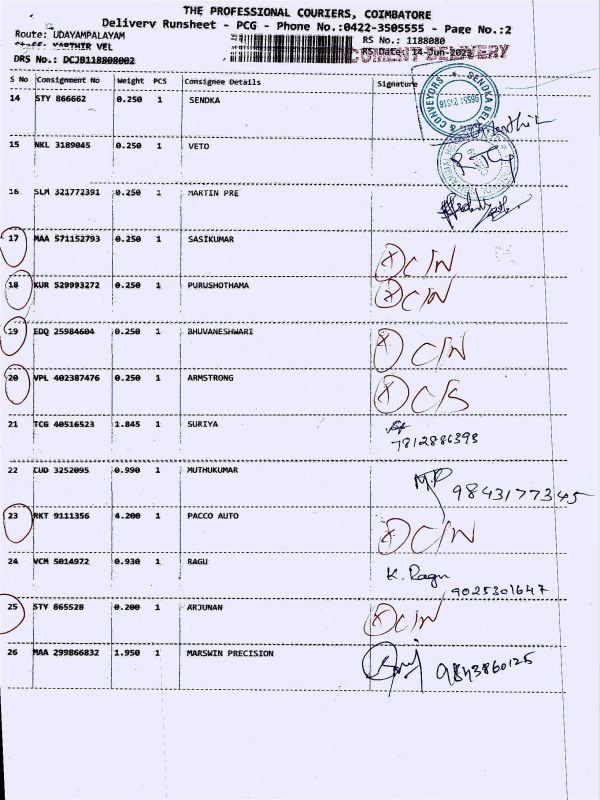 THE PROFESSIONAL COURIERS, COIMBATORE
Delivery Runsheet - PCG - Phone No.:0422-3505555 - Page No.:2
Route: UDAYAMPALAYAM RS No.: 1188080
Staff: KARTHIR VEL RS Date: 14-Jun-2023
DOCUMENT DELIVERY
DRS No.: DCJB118808002
S No Consignment No Weight PCS Consignee Details Signature
14 STY 866662 0.250 1 SENDKA
15 NKL 3189045 0.250 1 VETO
16 SLM 321772391 0.250 1 MARTIN PRE
17 MAA 571152793 0.250 1 SASIKUMAR X C/N
18 KUR 529993272 0.250 1 PURUSHOTHAMA X C/N
19 EDQ 25984604 0.250 1 BHUVANESHWARI X C/N
20 VPL 402387476 0.250 1 ARMSTRONG X C/S
21 TCG 40516523 1.845 1 SURIYA
7812886393
22 CUD 3252095 0.990 1 MUTHUKUMAR M.P 9843177345
23 RKT 9111356 4.200 1 PACCO AUTO X C/N
24 VCM 5014972 0.930 1 RAGU K. Ragu
9025301647
25 STY 865528 0.200 1 ARJUNAN X C/N
26 MAA 299866832 1.950 1 MARSWIN PRECISION 9843860125